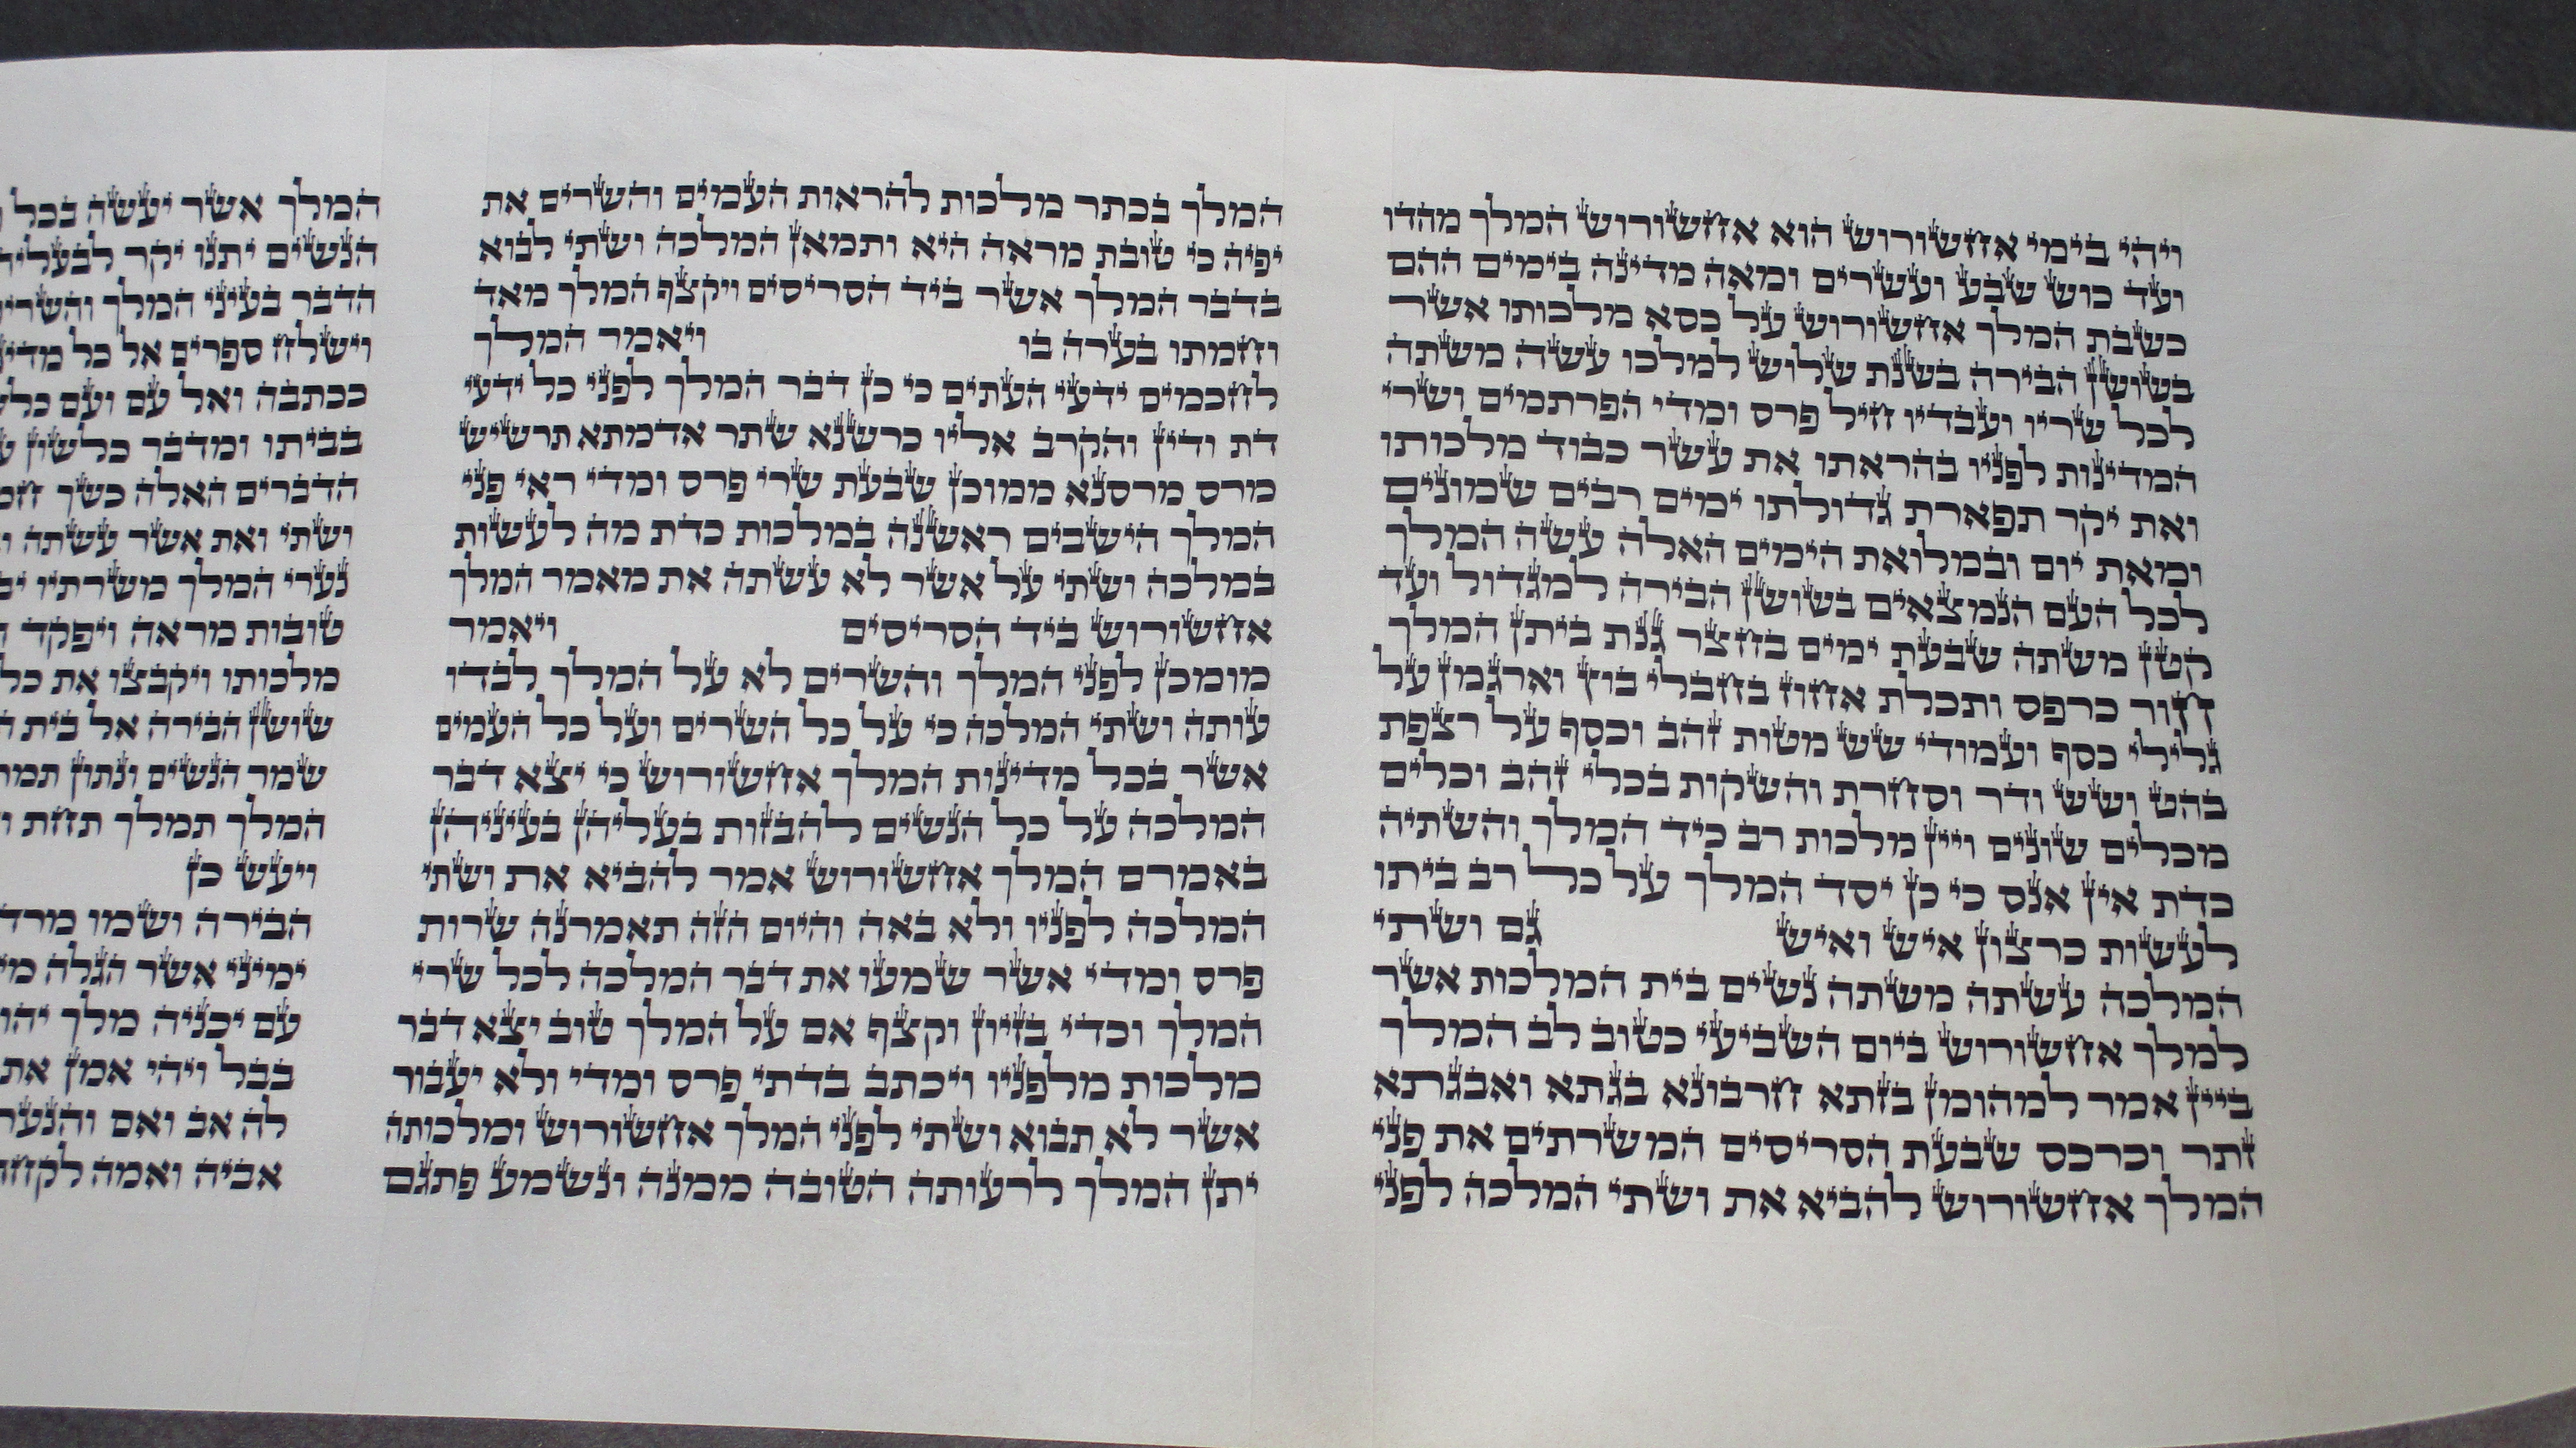 ויהי בימי אחשורוש הוא אחשורוש המלך מהדו
ועד כוש שבע ועשרים ומאה מדינה בימים ההם
כשבת המלך אחשורוש על כסא מלכותו אשר
בשושן הבירה בשנת שלוש למלכו עשה משתה
לכל שריו ועבדיו חיל פרס ומדי הפרתמים ושרי
המדינות לפניו בהראתו את עשר כבוד מלכותו
ואת יקר תפארת גדולתו ימים רבים שמונים
ומאת יום ובמלואת הימים האלה עשה המלך
לכל העם הנמצאים בשושן הבירה למגדול ועד
קטן משתה שבעת ימים בחצר גנת ביתן המלך
חור כרפס ותכלת אחוז בחבלי בוץ וארגמן על
גלילי כסף ועמודי שש מטות זהב וכסף על רצפת
בהט ושש ודר וסחרת והשקות בכלי זהב וכלים
מכלים שונים ויין מלכות רב כיד המלך והשתיה
כדת אין אנס כי כן יסד המלך על כל רב ביתו
לעשות כרצון איש ואיש גם ושתי
המלכה עשתה משתה נשים בית המלכות אשר
למלך אחשורוש ביום השביעי כטוב לב המלך
ביין אמר למהומן בזתא חרבונא בגתא ואבגתא
זתר וכרכס שבעת הסריסים המשרתים את פני
המלך אחשורוש להביא את ושתי המלכה לפני
המלך בכתר מלכות להראות העמים והשרים את
יפיה כי טובת מראה היא ותמאן המלכה ושתי לבוא
בדבר המלך אשר ביד הסריסים ויקצף המלך מאד
וחמתו בערה בו ויאמר המלך
לחכמים ידעי העתים כי כן דבר המלך לפני כל ידעי
דת ודין והקרב אליו כרשנא שתר אדמתא תרשיש
מרס מרסנא ממוכן שבעת שרי פרס ומדי ראי פני
המלך הישבים ראשנה במלכות כדת מה לעשות
במלכה ושתי על אשר לא עשתה את מאמר המלך
אחשורוש ביד הסריסים ויאמר
מומכן לפני המלך והשרים לא על המלך לבדו
עותה ושתי המלכה כי על כל השרים ועל כל העמים
אשר בכל מדינות המלך אחשורוש כי יצא דבר
המלכה על כל הנשים להבזות בעליהן בעיניהן
באמרם המלך אחשורוש אמר להביא את ושתי
המלכה לפניו ולא באה והיום הזה תאמרנה שרות
פרס ומדי אשר שמעו את דבר המלכה לכל שרי
המלך וכדי בזיון וקצף אם על המלך טוב יצא דבר
מלכות מלפניו ויכתב בדתי פרס ומדי ולא יעבור
אשר לא תבוא ושתי לפני המלך אחשורוש ומלכותה
יתן המלך לרעותה הטובה ממנה ונשמע פתגם
המלך אשר יעשה בכל
הנשים יתנו יקר
הדבר בעיני המלך
וישלח ספרים אל כל
ככתבה ואל עם ועם
בביתו ומדבר כלשון
הדברים האלה כשך
ושתי ואת אשר עשתה
נערי המלך משרתיו
טובות מראה ויפקד
מלכותו ויקבצו את כל
שושן הבירה אל בית
שמר הנשים ונתון
המלך תמלך תחת
ויעש כן
הבירה ושמו
ימיני אשר הגלה
עם יכניה מלך
בבל ויהי אמן את
לה אב ואם
אביה ואמה